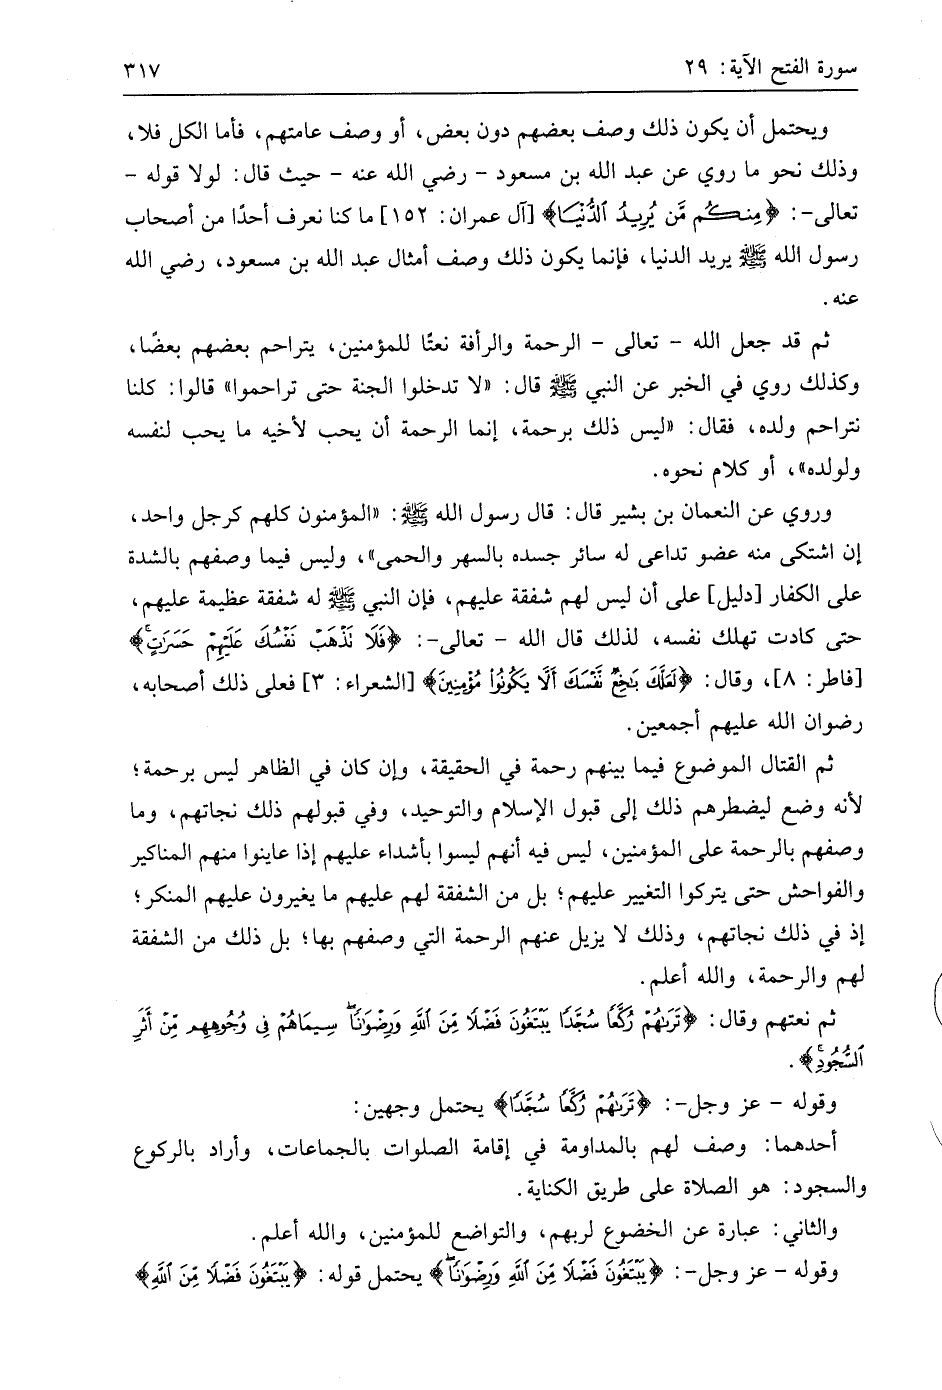 سورة الفتح الآية: ٢٩ ٣١٧
ويحتمل أن يكون ذلك وصف بعضهم دون بعض، أو وصف عامتهم، فأما الكل فلا،
وذلك نحو ما روي عن عبد الله بن مسعود – رضي الله عنه – حيث قال: لولا قوله –
تعالى–: ﴿مِنكُم مَّن يُرِيدُ ٱلدُّنْيَا﴾ [آل عمران: ١٥٢] ما كنا نعرف أحدًا من أصحاب
رسول الله ﷺ يريد الدنيا، فإنما يكون ذلك وصف أمثال عبد الله بن مسعود، رضي الله
عنه.
ثم قد جعل الله – تعالى – الرحمة والرأفة نعتًا للمؤمنين، يتراحم بعضهم بعضًا،
وكذلك روي في الخبر عن النبي ﷺ قال: «لا تدخلوا الجنة حتى تراحموا» قالوا: كلنا
نتراحم ولده، فقال: «ليس ذلك برحمة، إنما الرحمة أن يحب لأخيه ما يحب لنفسه
ولولده»، أو كلام نحوه.
وروي عن النعمان بن بشير قال: قال رسول الله ﷺ: «المؤمنون كلهم كرجل واحد،
إن اشتكى منه عضو تداعى له سائر جسده بالسهر والحمى»، وليس فيما وصفهم بالشدة
على الكفار [دليل] على أن ليس لهم شفقة عليهم، فإن النبي ﷺ له شفقة عظيمة عليهم،
حتى كادت تهلك نفسه، لذلك قال الله – تعالى–: ﴿فَلَا نَذْهَبْ نَفْسُكَ عَلَيْهِمْ حَسَرَٰتٍۚ﴾
[فاطر: ٨]، وقال: ﴿لَعَلَّكَ بَٰخِعٌ نَّفْسَكَ أَلَّا يَكُونُوا۟ مُؤْمِنِينَ﴾ [الشعراء: ٣] فعلى ذلك أصحابه،
رضوان الله عليهم أجمعين.
ثم القتال الموضوع فيما بينهم رحمة في الحقيقة، وإن كان في الظاهر ليس برحمة؛
لأنه وضع ليضطرهم ذلك إلى قبول الإسلام والتوحيد، وفي قبولهم ذلك نجاتهم، وما
وصفهم بالرحمة على المؤمنين، ليس فيه أنهم ليسوا بأشداء عليهم إذا عاينوا منهم المناكير
والفواحش حتى يتركوا التغيير عليهم؛ بل من الشفقة لهم عليهم ما يغيرون عليهم المنكر؛
إذ في ذلك نجاتهم، وذلك لا يزيل عنهم الرحمة التي وصفهم بها؛ بل ذلك من الشفقة
لهم والرحمة، والله أعلم.
ثم نعتهم وقال: ﴿تَرَىٰهُمْ رُكَّعًا سُجَّدًا يَبْتَغُونَ فَضْلًا مِّنَ ٱللَّهِ وَرِضْوَٰنًاۖ سِيمَاهُمْ فِى وُجُوهِهِم مِّنْ أَثَرِ
ٱلسُّجُودِۚ﴾.
وقوله – عز وجل–: ﴿تَرَىٰهُمْ رُكَّعًا سُجَّدًا﴾ يحتمل وجهين:
أحدهما: وصف لهم بالمداومة في إقامة الصلوات بالجماعات، وأراد بالركوع
والسجود: هو الصلاة على طريق الكناية.
والثاني: عبارة عن الخضوع لربهم، والتواضع للمؤمنين، والله أعلم.
وقوله – عز وجل–: ﴿يَبْتَغُونَ فَضْلًا مِّنَ ٱللَّهِ وَرِضْوَٰنًاۖ﴾ يحتمل قوله: ﴿يَبْتَغُونَ فَضْلًا مِّنَ ٱللَّهِ﴾